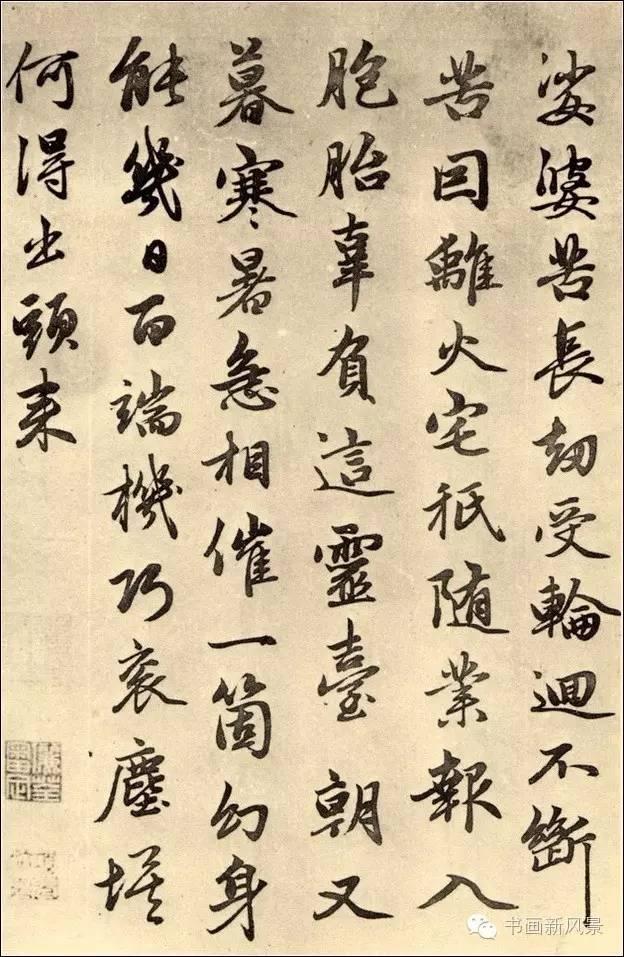 娑婆苦長劫受輪迴不斷
苦因離火宅秖隨業報入
胞胎辜負這靈臺朝又
暮寒暑急相催一箇幻身
能幾日百端機巧衮塵埃
何得出頭来
书画新风景